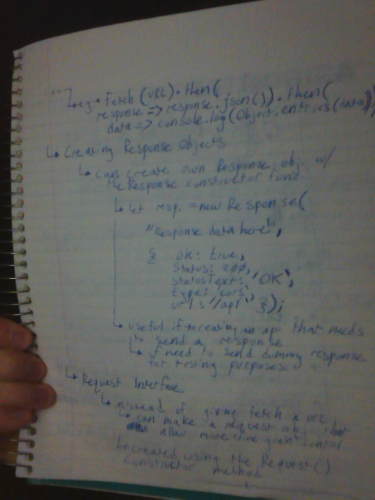 ↳ eg → Fetch (URL).then(
response => response.json()).then(
data => console.log(Object.entries(data))
↳ Creating Response Objects
↳ can create own Response obj w/
the Response constructor func
↳ let resp = new Response(
"Response data here",
{ ok: true,
status: 200,
statusText: 'OK',
type: 'cors',
url: '/api' });
↳ useful if creating an api that needs
↳ send a response
↳ if need to send dummy response
for testing purposes
↳ Request Interface
↳ instead of giving fetch a URL
↳ can make a request obj that
allow more fine grain control
↳ created using the Request()
constructor method